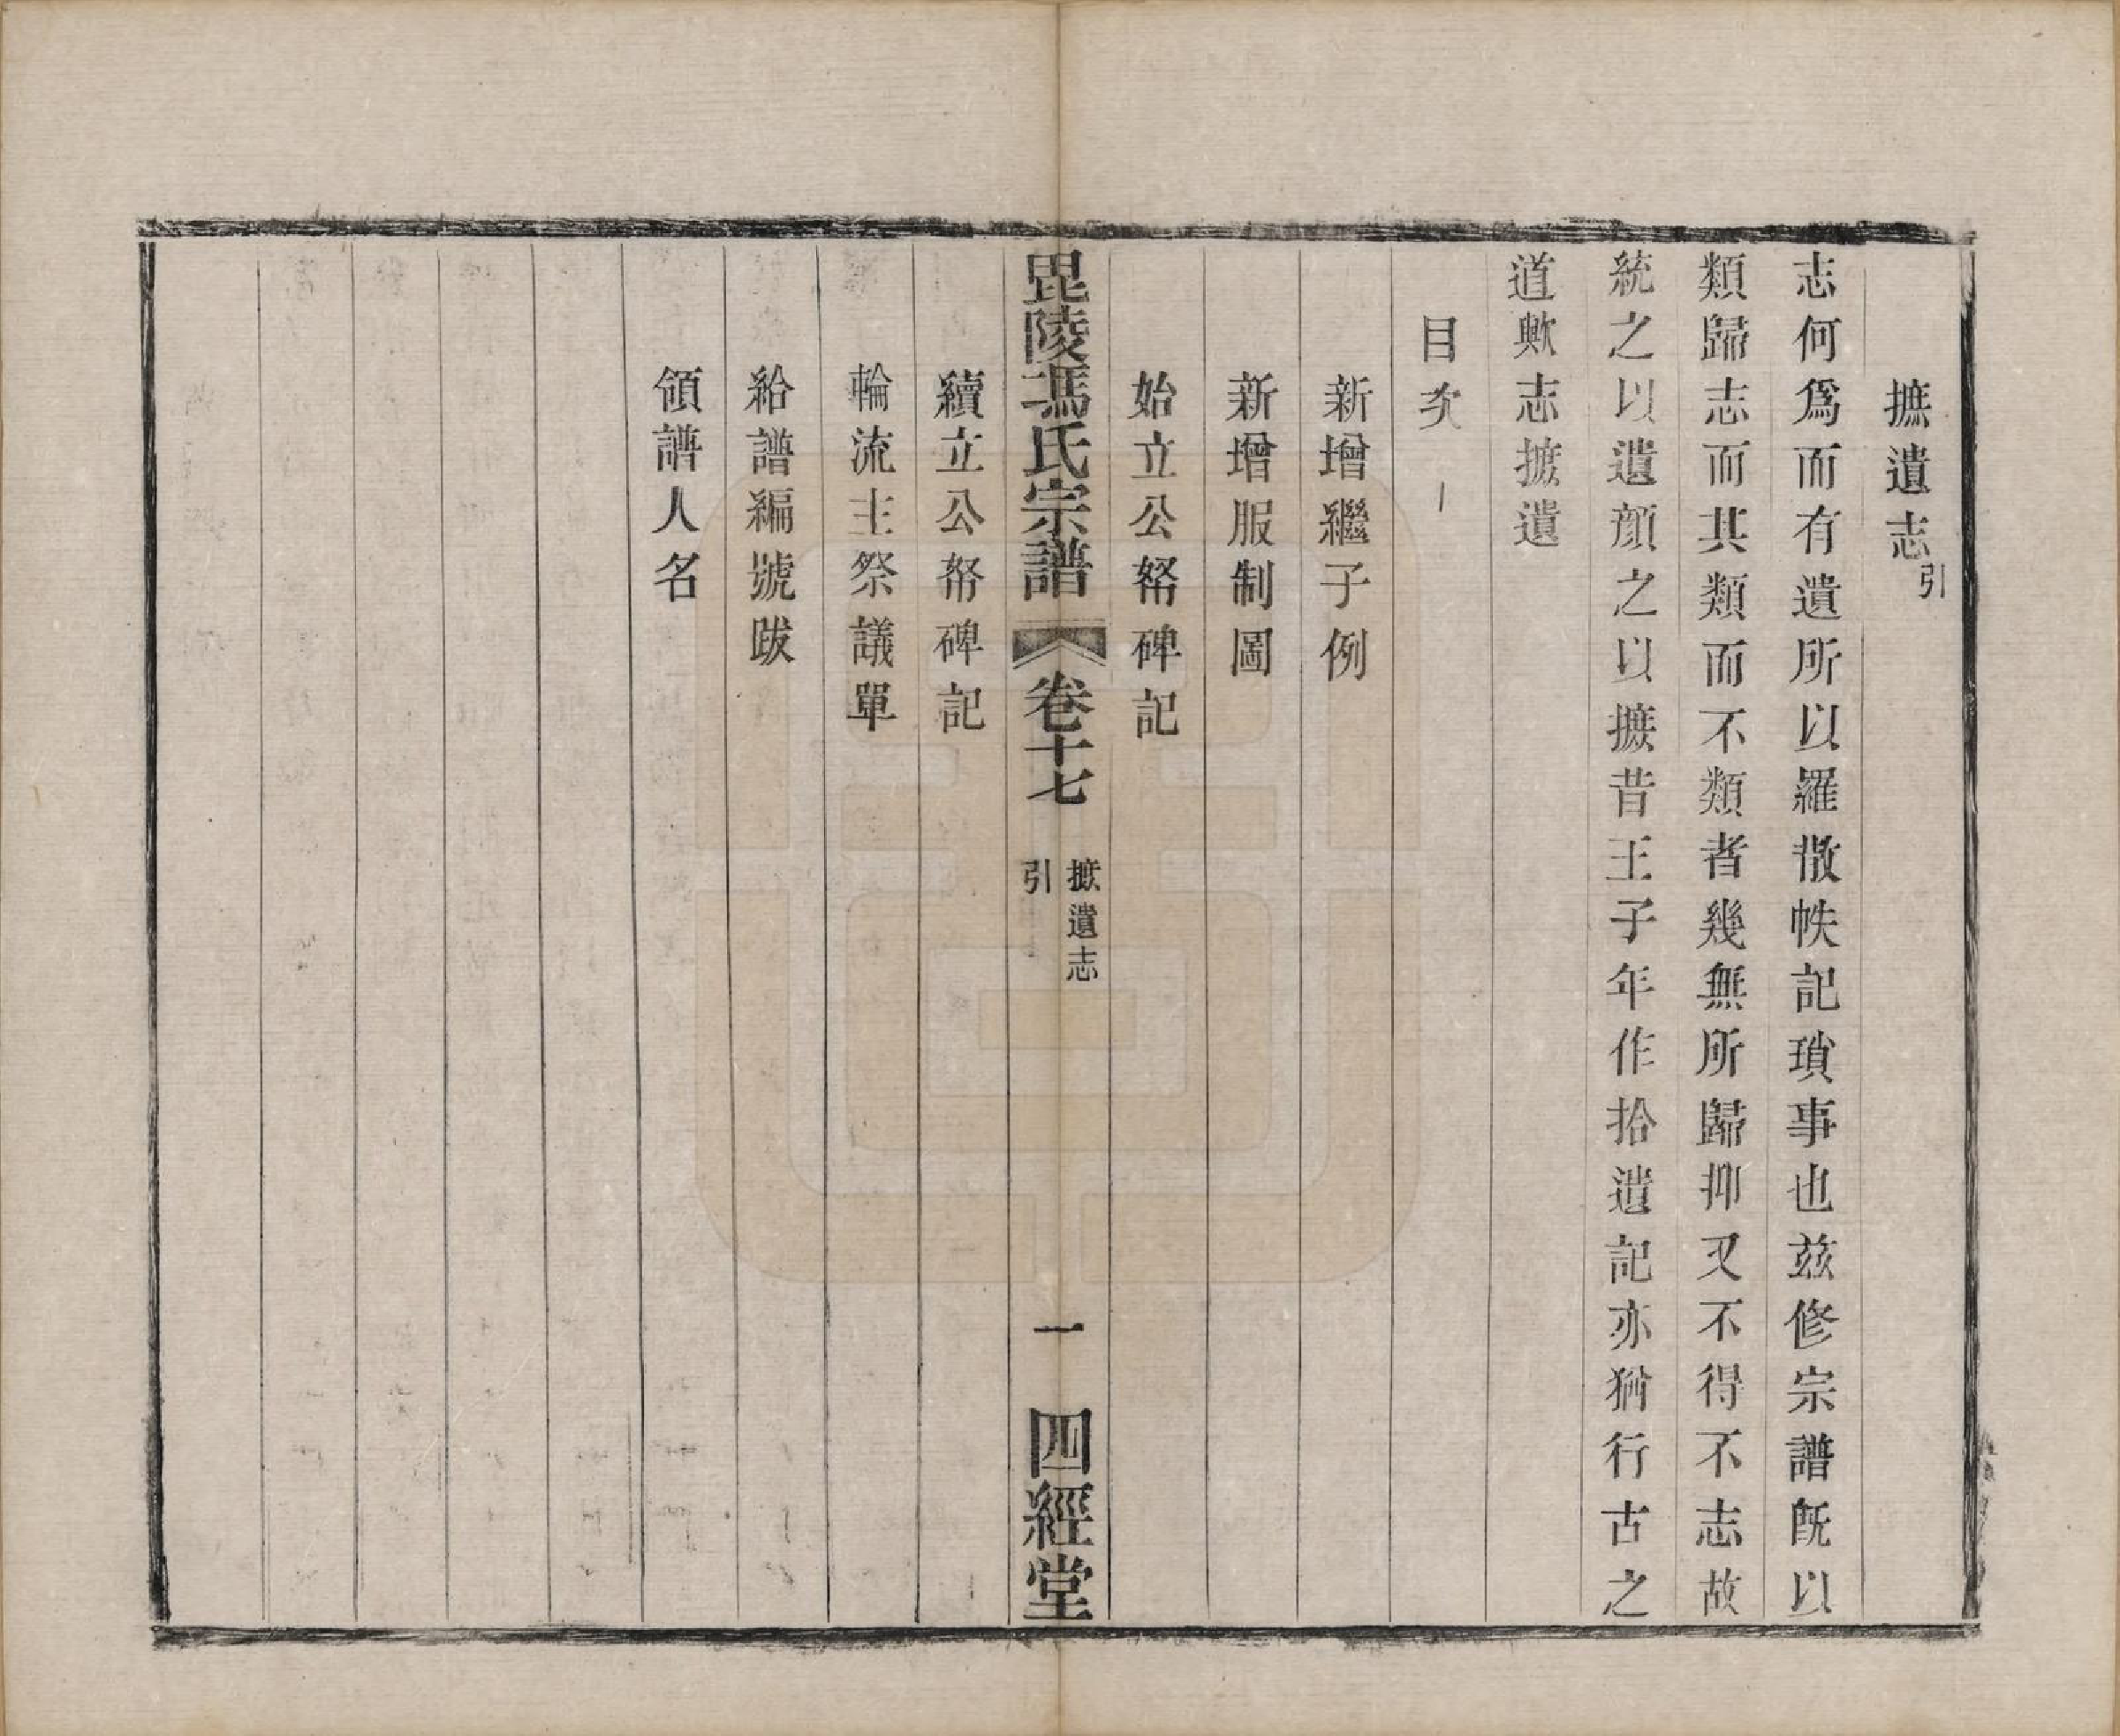 摭遺志引
志何爲而有遺所以羅散帙記瑣事也茲修宗譜旣以
類歸志而其類而不類者幾無所歸抑又不得不志故
統之以遺顏之以摭昔王子年作拾遺記亦猶行古之
道歟志摭遺
目次
新增繼子例
新增服制圖
始立公帑碑記
毘陵馮氏宗譜 卷十七 摭遺志引 一 四經堂
續立公帑碑記
輪流主祭議單
給譜編號跋
領譜人名